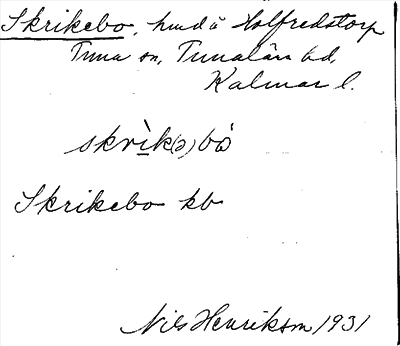 Skrikebo, hmd å Holfredstorp
Tuna sn, Tunaläns hd,
Kalmar l.
skrìk(ə)bω̇
Skrikebo kb
Nils Henrikson 1931